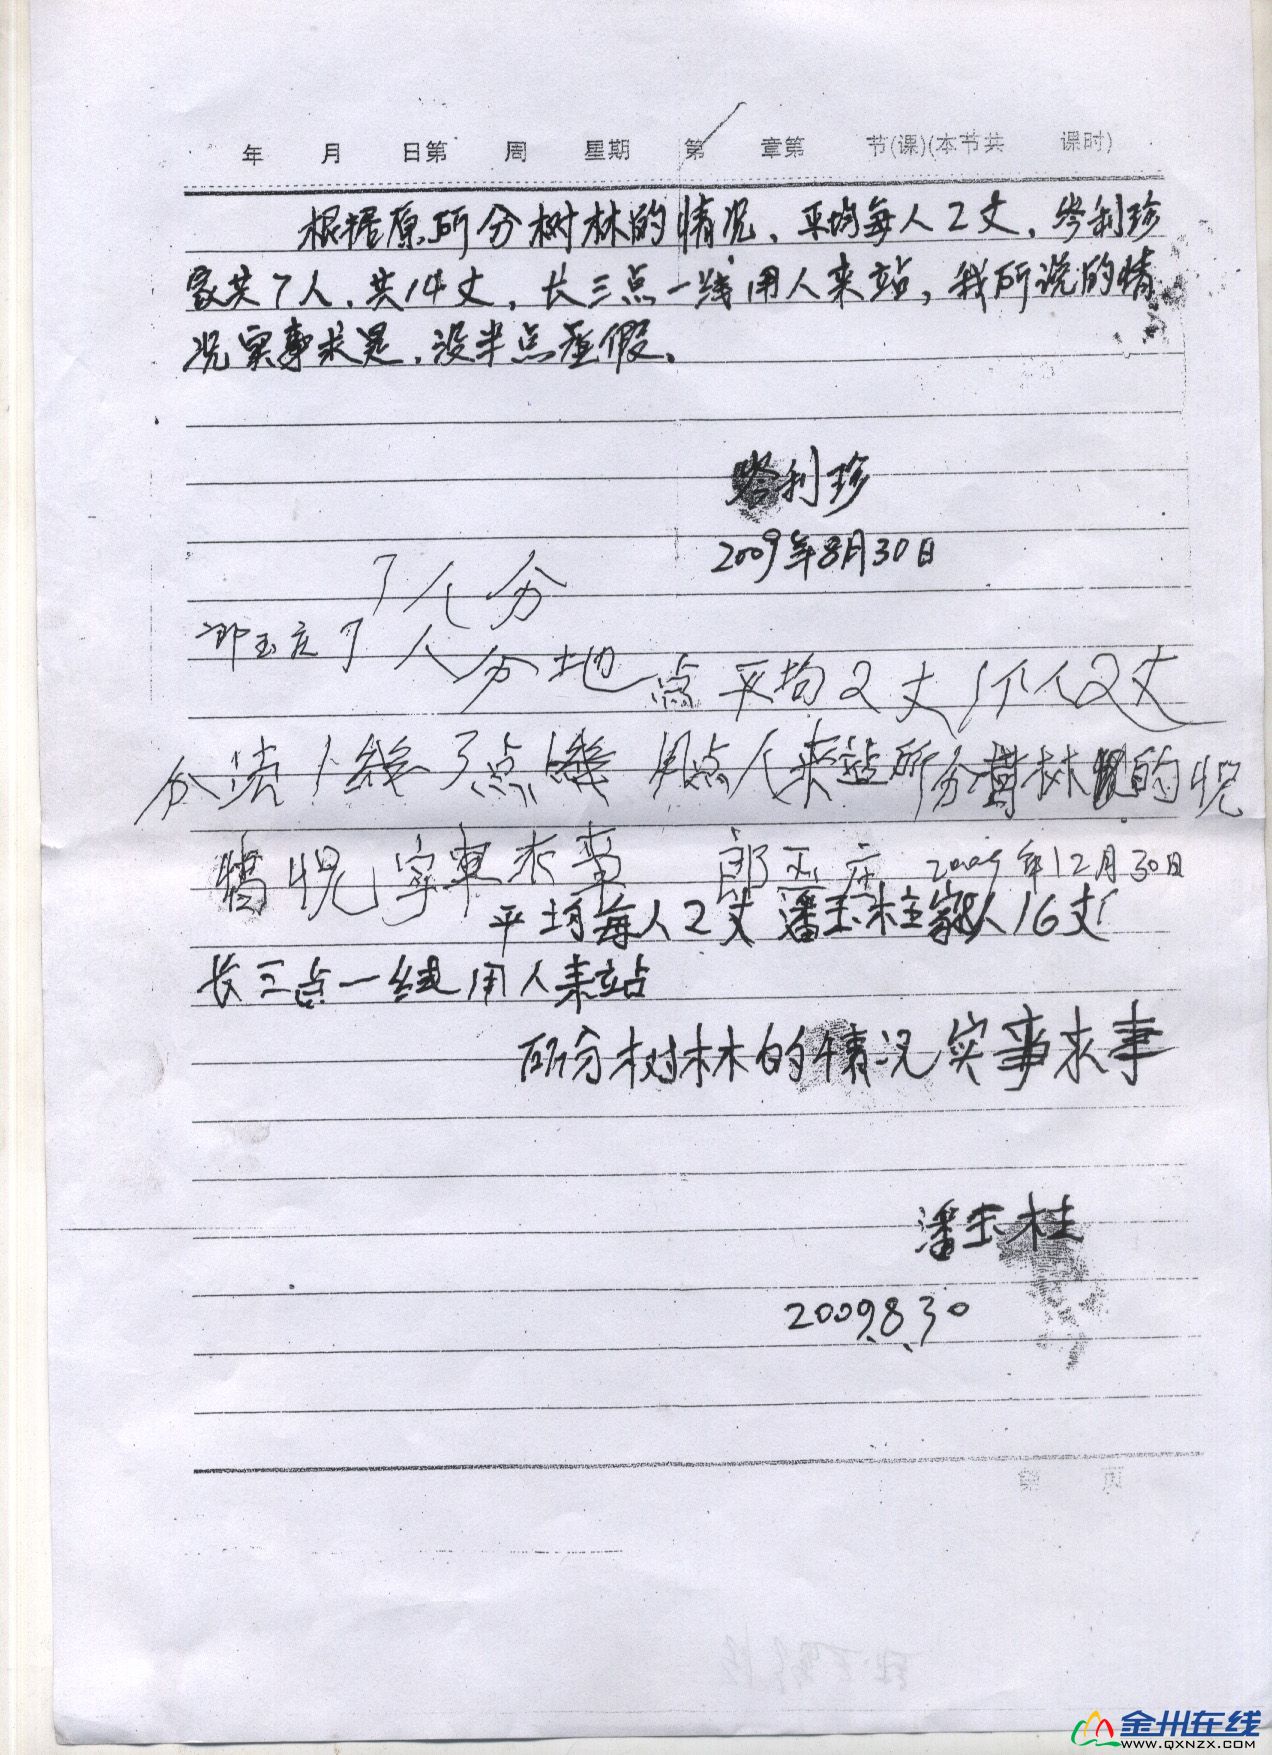 年 月 日第 周 星期 第 章第 节(课)(本节共 课时)
根据原所分树林的情况、平均每人2丈、岑利珍
家共7人、共14丈，长三点一线用人来站，我所说的情
况实事求是、没半点虚假、
岑利珍
2009年8月30日
7人分
7人分地点平均2丈1个人2丈
点 用点人来站所分树林的
郎玉庄 2009年12月30日
平均每人2丈 潘玉柱家8人16丈
长三点一线用人来站
所分树林的情况实事求事
潘玉柱
2009.8.30
第 页
金州在线
WWW.QXNZX.COM